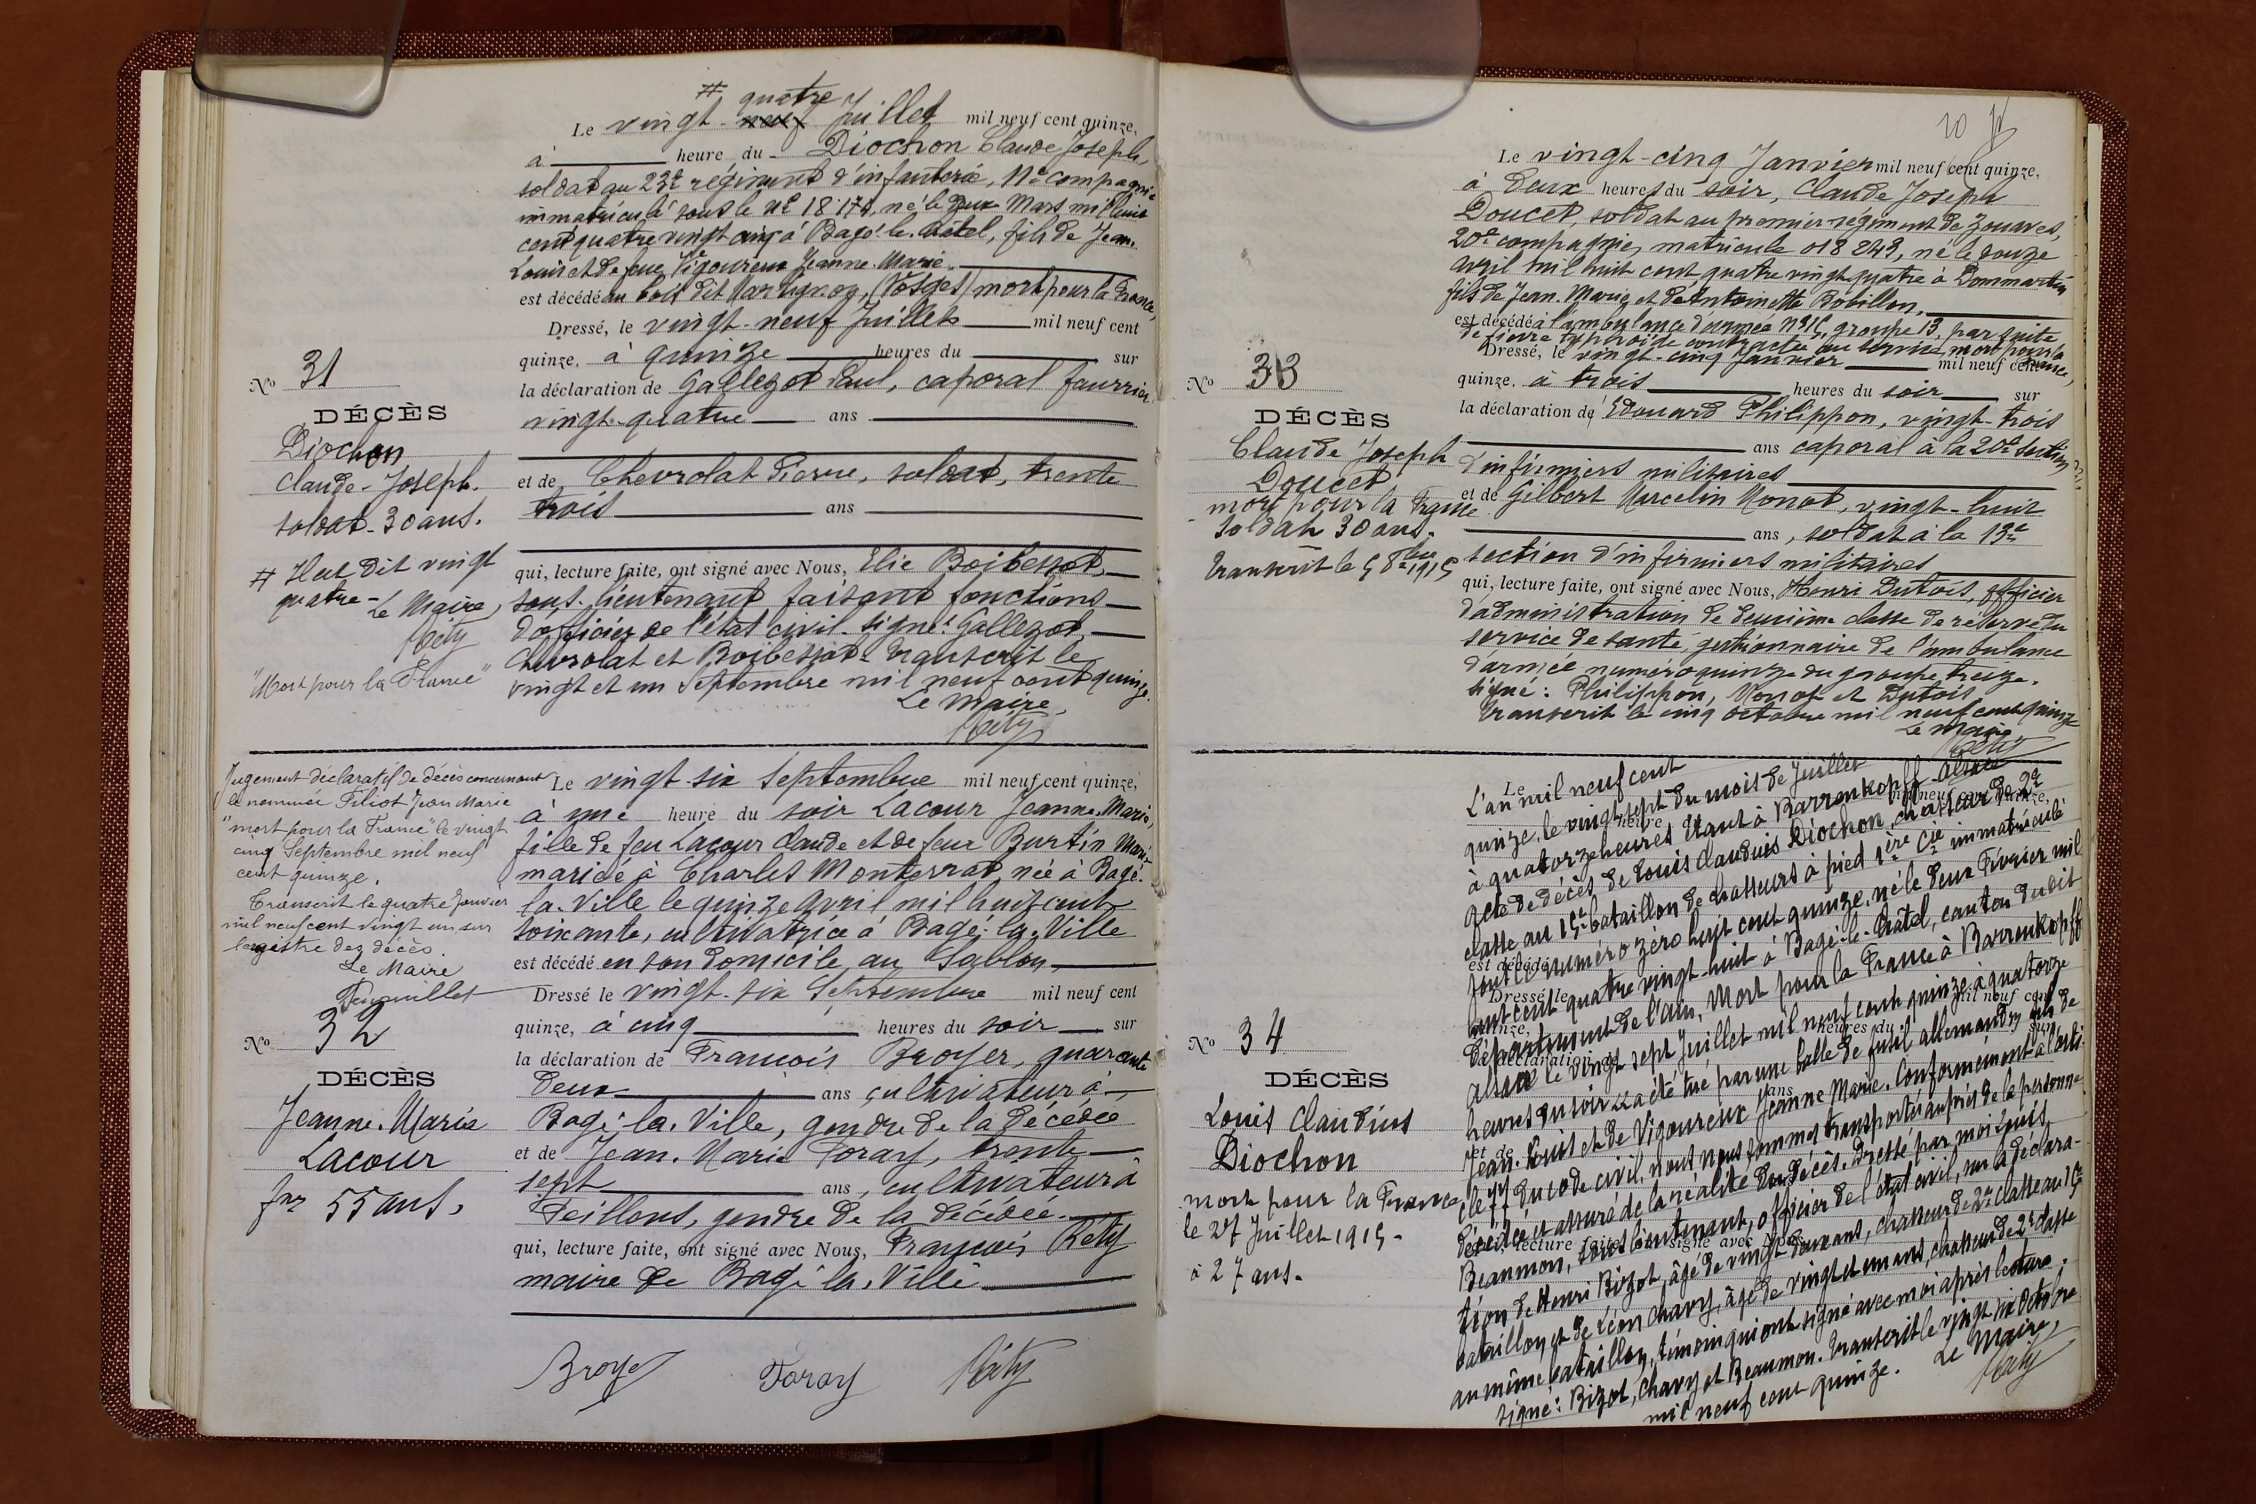 # quatre
Le vingt-neuf Juillet mil neuf cent quinze,
à heure du Diochon Claude Joseph,
soldat au 23e régiment d'infanterie, 11e compagnie
immatriculé sous le No 18174, né le deux Mars mil huit
cent quatre vingt cinq à Bagé-le-Châtel, fils de Jean-
Louis et de feue Vigoureux Jeanne-Marie
est décédé au bois dit (Vosges) mort pour la France,
Dressé, le vingt-neuf Juillet mil neuf cent
quinze, à quinze heures du sur
la déclaration de Gallezot Paul, caporal fourrier
vingt-quatre ans
et de Chevrolat Pierre, soldat, trente
trois ans
qui, lecture faite, ont signé avec Nous, Elie Boibessot
sous-lieutenant faisant fonctions
d'officier de l'état civil. Signé: Gallezot,
Chevrolat et Boibessot. Transcrit le
vingt et un Septembre mil neuf cent quinze.
Le Maire,
Réty
No 31
DÉCÈS
Diochon
Claude-Joseph.
soldat-30 ans.
# Il est dit vingt
quatre-
Le Maire,
Réty
"Mort pour la France"
Jugement déclaratif de décès concernant
le nommé Filiot Jean Marie
"mort pour la France" le vingt
cinq Septembre mil neuf
cent quinze.
Transcrit le quatre Janvier
mil neuf cent vingt un sur
le registre des décès
Le Maire
No 32
DÉCÈS
Jeanne-Marie
Lacour
55 ans.
Le vingt-six Septembre mil neuf cent quinze,
à une heure du soir Lacour Jeanne-Marie,
fille de feu Lacour Claude et de feue Burtin Marie
mariée à Charles Monterrat, née à Bagé-
la-Ville le quinze Avril mil huit cent
soixante, cultivatrice à Bagé-la-Ville
est décédé en son domicile, au Sablon,
Dressé le vingt-six Septembre mil neuf cent
quinze, à cinq heures du soir sur
la déclaration de François Broyer, quarante
deux ans cultivateur à
Bagé-la-Ville, gendre de la décédée
et de Jean-Marie Foray, trente
sept ans, cultivateur à
Feillens, gendre de la décédée.
qui, lecture faite, ont signé avec Nous, François Réty
maire de Bagé-la-Ville
Broyer Foray Réty
20
Le vingt-cinq Janvier mil neuf cent quinze,
à deux heures du soir, Claude Joseph
Doucet, soldat au premier régiment de Zouaves,
20e compagnie, matricule 018243, né le douze
Avril mil huit cent quatre vingt quatre à Dommartin
fils de Jean-Marie et de Antoinette Bobillon,
est décédé à l'ambulance d'armée No 15, groupe 13, par suite
de fièvre typhoïde contractée au service, mort pour la
France,
Dressé, le vingt-cinq Janvier mil neuf cent
quinze, à trois heures du soir sur
la déclaration de Edouard Philippon, vingt-trois
ans caporal à la 20e section
d'infirmiers militaires
et de Gilbert Marcelin Monot, vingt-huit
ans, soldat à la 13e
section d'infirmiers militaires
qui, lecture faite, ont signé avec Nous, Henri Dutois, officier
d'administration de deuxième classe de réserve du
service de santé, gestionnaire de l'ambulance
d'armée numéro quinze du groupe treize.
signé: Philippon, Monot et Dutois
Transcrit le cinq octobre mil neuf cent quinze
Le Maire
Réty
No 33
DÉCÈS
Claude Joseph
Doucet
mort pour la France
soldat 30 ans.
Transcrit le 5 8bre 1915
No 34
DÉCÈS
Louis Claudius
Diochon
mort pour la France
le 27 Juillet 1915-
à 27 ans.
L'an mil neuf cent
quinze, le vingt-sept du mois de Juillet
à quatorze heures étant à Barrenkopff-Alsace
Acte de décès de Louis Claudius Diochon, chasseur de 2e
classe au 15e bataillon de chasseurs à pied 1ère Cie immatriculé
sous le numéro zéro huit cent quinze, né le deux Février mil
huit cent quatre vingt-huit à Bagé-le-Châtel, canton dudit
département de l'Ain, Mort pour la France à Barrenkopff
Alsace le vingt sept Juillet mil neuf cent quinze à quatorze
heures du soir a été tué par une balle de fusil allemand, fils de
Jean-Louis et de Vigoureux Jeanne Marie. Conformément à l'arti-
cle 77 du code civil, nous nous sommes transporté auprès de la personne
décédée et assuré de la réalité du décès. Dressé par moi Louis
Beaumon, sous lieutenant, officier de l'état civil, sur la déclara-
tion de Henri Bizot, âgé de vingt deux ans, chasseur de 2e classe au 15e
bataillon et de Léon Chavy, âgé de vingt et un ans, chasseur de 2e classe
au même bataillon, témoins qui ont signé avec moi après lecture.
signé: Bizot, Chavy et Beaumon. Transcrit le vingt six Octobre
mil neuf cent quinze.
Le Maire,
Réty